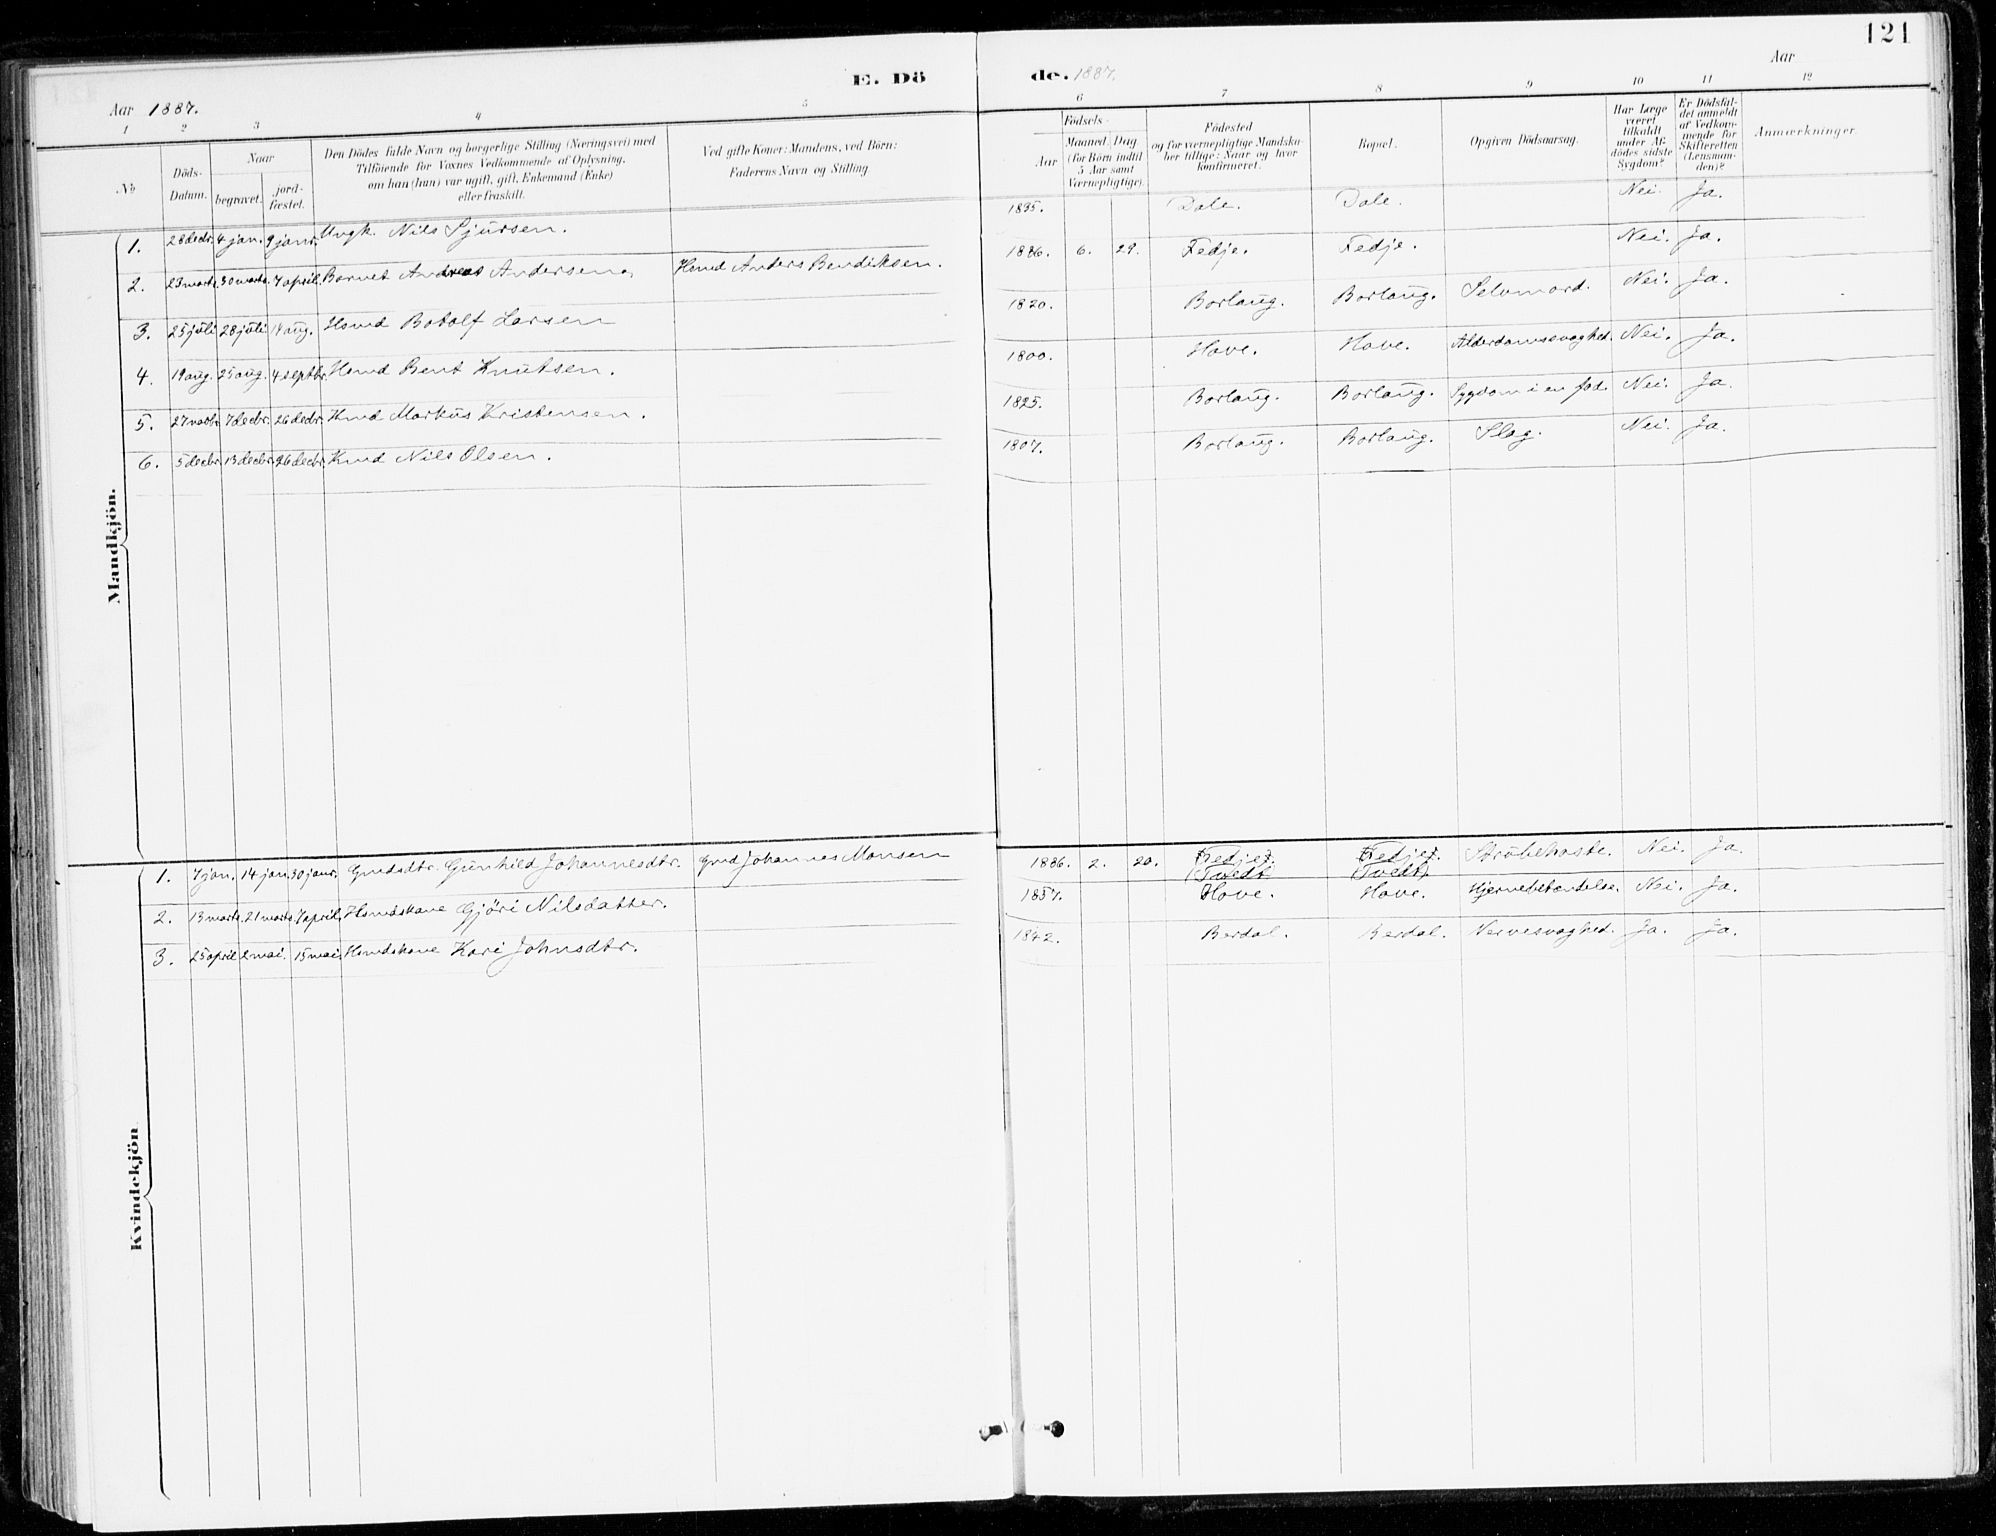 121
E. Dö
de. 1887.
Aar 1887.
Aar
1 2 3 4 5 6 7 8 9 10 11 12
No
Döds-
Datum.
Naar
begravet.
jord-
fæstet.
Den Dödes fulde Navn og borgerlige Stilling (Næringsvei) med
Tilföiende for Voxnes Vedkommende af Oplysning,
om han (hun) var ugift, gift, Enkemand (Enke)
eller fraskilt.
Ved gifte Koner: Mandens, ved Börn:
Faderens Navn og Stilling
Födsels-
Aar
Maaned. Dag
(for Börn indtil
5 Aar samt
Værnepligtige).
Födested
og for værnepligtige Mandska-
ber tillige: Naar og hvor
konfirmeret.
Bopæl.
Opgiven Dödsaarsag.
Har Læge
været
tilkaldt
under Af-
dödes sidste
Sygdom?
Er Dödsfal-
det anmeldt
af Vedkom-
mende for
Skifteretten
(Lensman-
den)?
Anmærkninger.
Mandkjön.
1. 28 decbr. 4 jan. 9 janr. Ungk. Nils Sjursen. 1835. Dale. Dale. Nei. Ja.
2. 23 marts. 30 marts. 7 april. Barnet Andreas Andersen. Hsmd Anders Bendiksen. 1886 6. 29. Fedje. Fedje. Nei. Ja.
3. 25 juli 28 juli 14 aug. Hsmd Botolf Larsen 1820. Borlaug. Borlaug. Selvmord. Nei. Ja.
4. 19 aug. 25 aug. 4 septbr. Hsmd Bent Knutsen. 1800. Hove. Hove. Alderdomssvaghed. Nei. Ja.
5. 27 novbr. 7 decbr. 26 decbr. Kmd Markus Kristensen. 1825. Borlaug. Borlaug. Sygdom i en fod. Nei. Ja.
6. 5 decbr. 13 decbr. 26 decbr. Kmd Nils Olsen. 1807. Borlaug. Borlaug. Slag. Nei. Ja.
Kvindekjön
1. 7 jan. 14 jan. 30 janr. Gmdsdtr. Gunhild Johannesdtr. Gmd Johannes Monsen 1886. 2. 20. Fedje. Fedje. Strubehoste. Nei. Ja.
(Tvedt) (Tvedt)
2. 13 marts. 21 marts. 7 april. Hsmdskone Gjöri Nilsdatter. 1857. Hove. Hove. Hjernebetændelse. Nei. Ja.
3. 25 april 2 mai. 15 mai. Hsmdskone Kari Johnsdtr. 1842. Berdal. Berdal. Nervesvaghed. Ja. Ja.